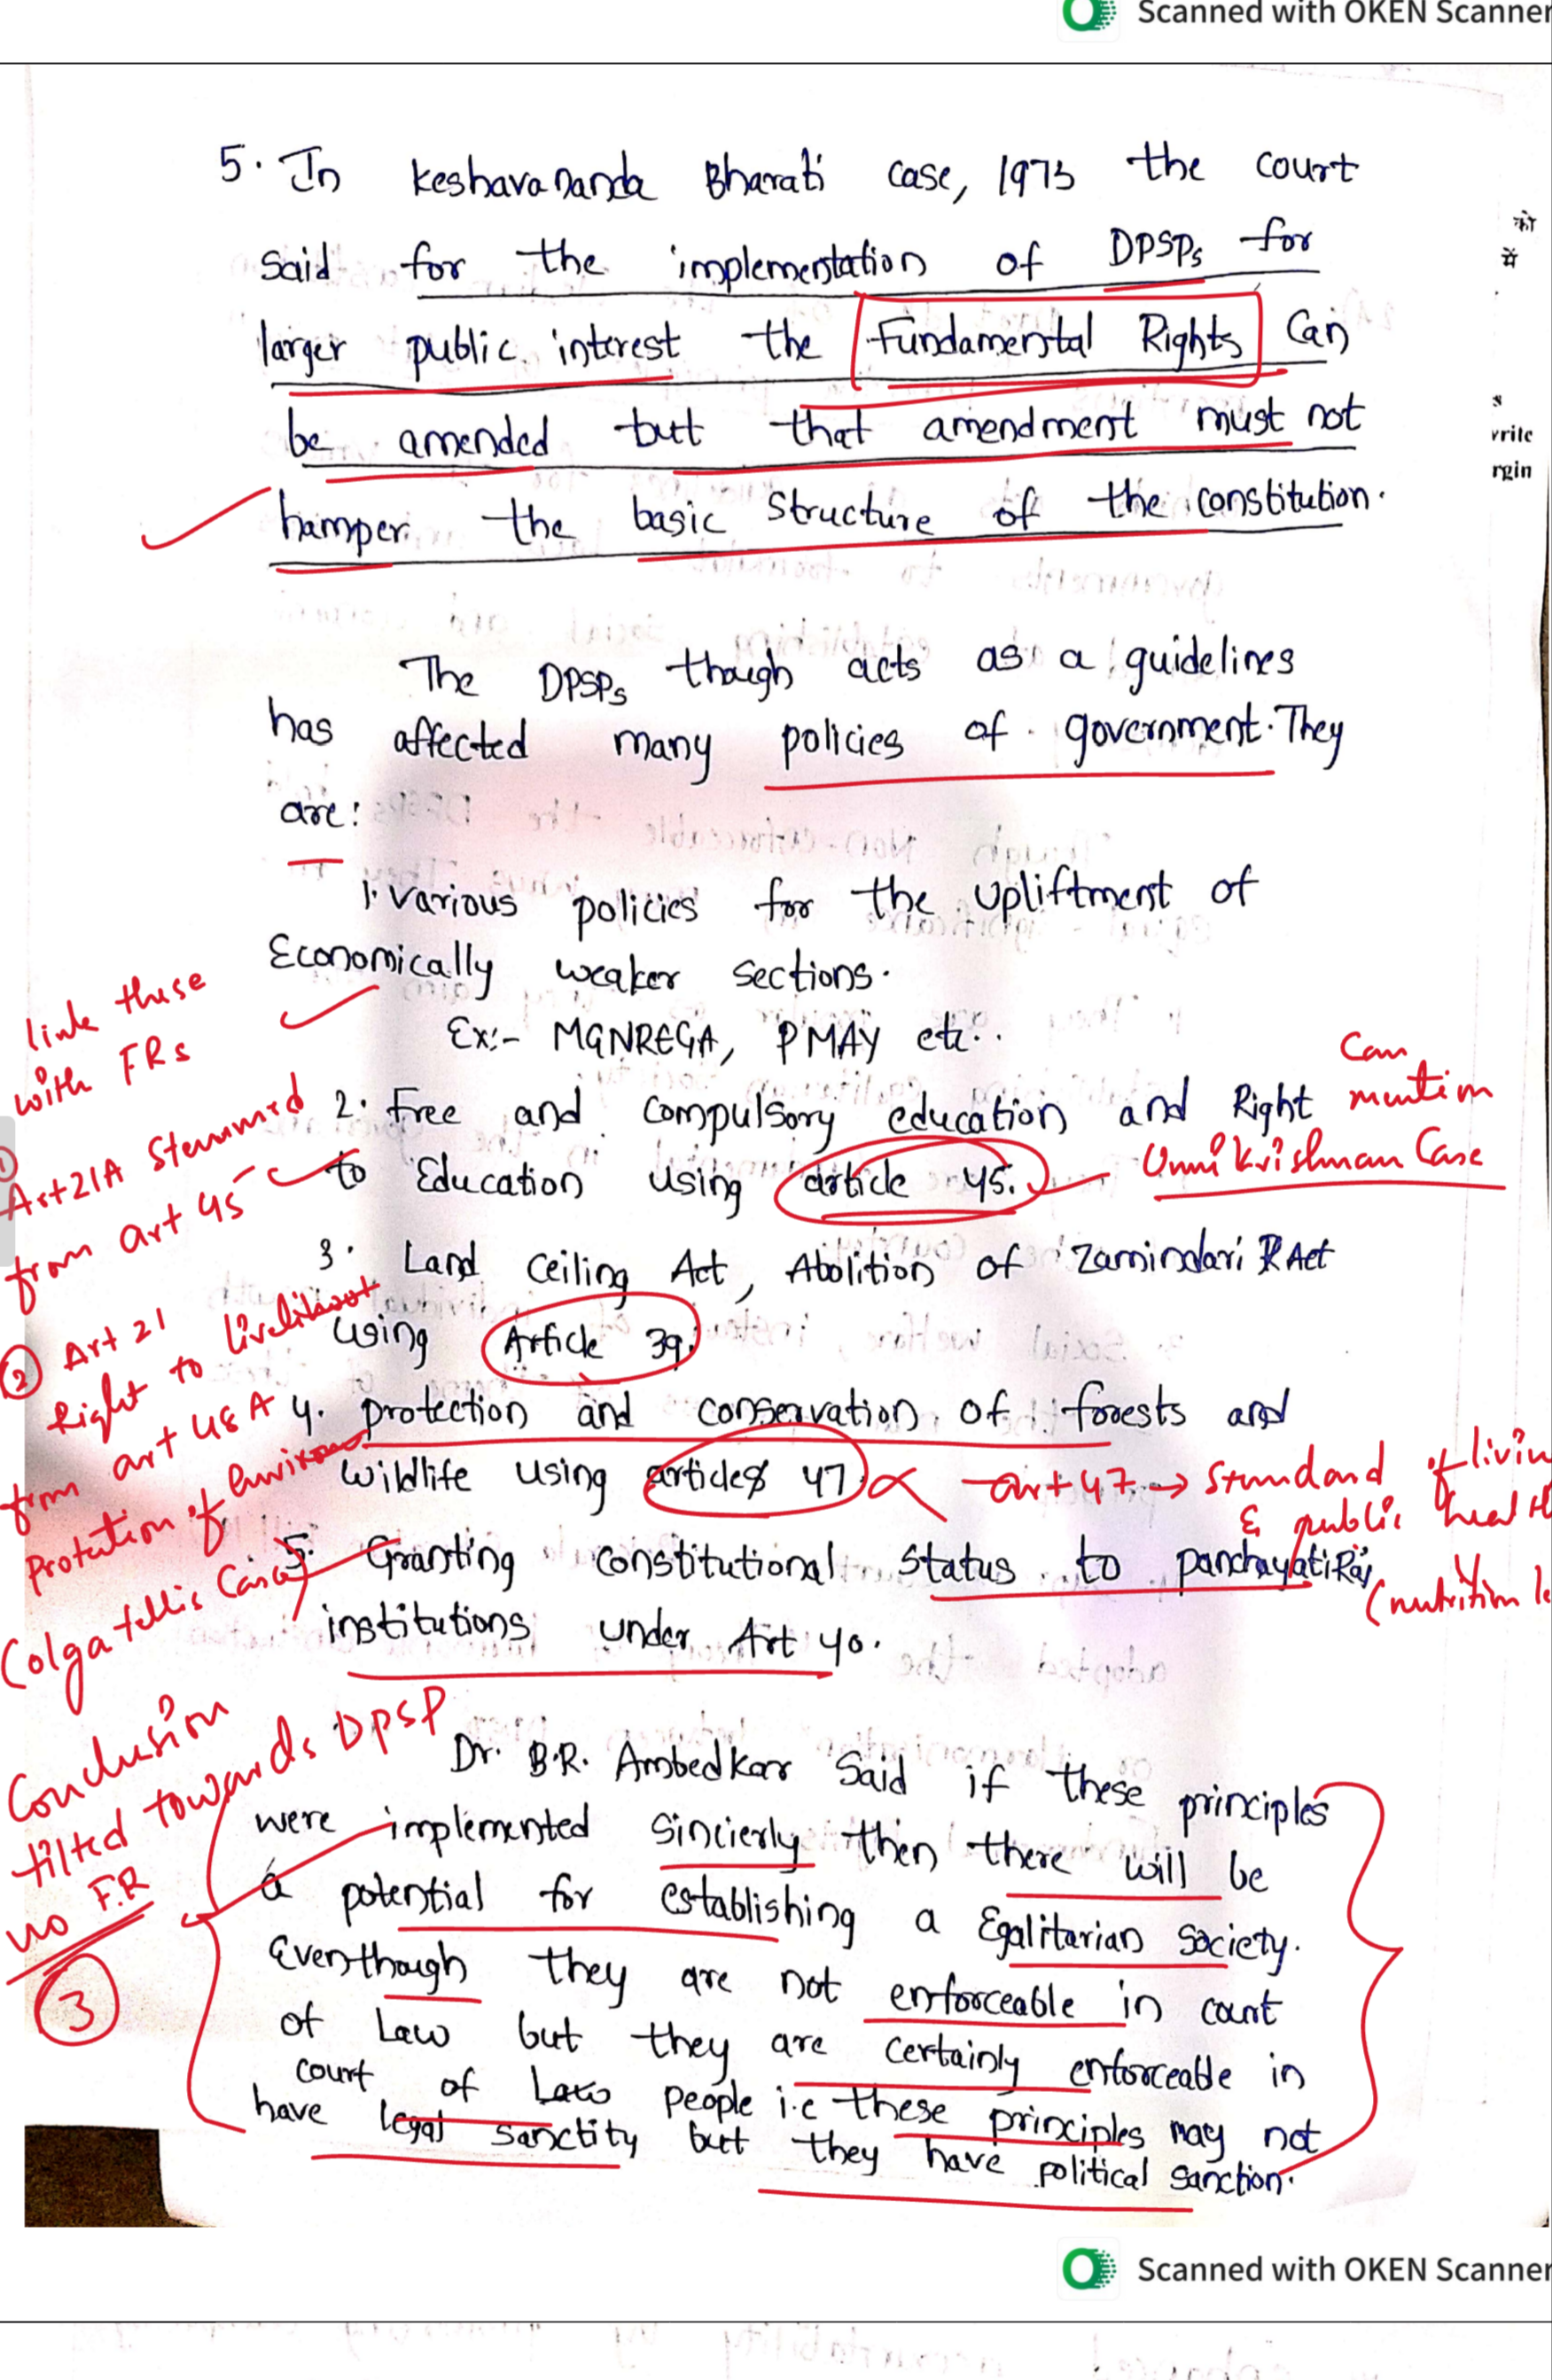 Scanned with OKEN Scanner
5. In Keshavananda Bharati case, 1973 the court
said for the implementation of DPSPs for
larger public interest the Fundamental Rights Can
be amended but that amendment must not
hamper the basic structure of the constitution.
को
में
s
write
rgin
The DPSPs though acts as a guidelines
has affected many policies of government. They
are:
1. Various policies for the upliftment of
Economically weaker sections.
Ex:- MGNREGA, PMAY etc..
link these
with FRs
2. Free and compulsory education and Right
to Education using article 45.
Can
mention
Unnikrishnan Case
① Art 21A stemmed
from art 45
3. Land Ceiling Act, Abolition of Zamindari Act
using Article 39.
② Art 21
Right to livelihood
from art 48A
Protection of environ
(olga tellis Case)
4. protection and conservation of forests and
wildlife using article 47.
art 47 → standard of livin
& public healt
(nutrition le
5. Granting constitutional status to panchayati Raj
institutions under Art 40.
Conclusion
tilted towards DPSP
no F.R
③
Dr. B.R. Ambedkar said if these principles
were implemented sincierly then there will be
a potential for establishing a Egalitarian society.
Eventhough they are not enforceable in court
of Law but they are certainly enforceable in
court of people i.e these principles may not
have legal sanctity but they have political sanction.
Scanned with OKEN Scanner